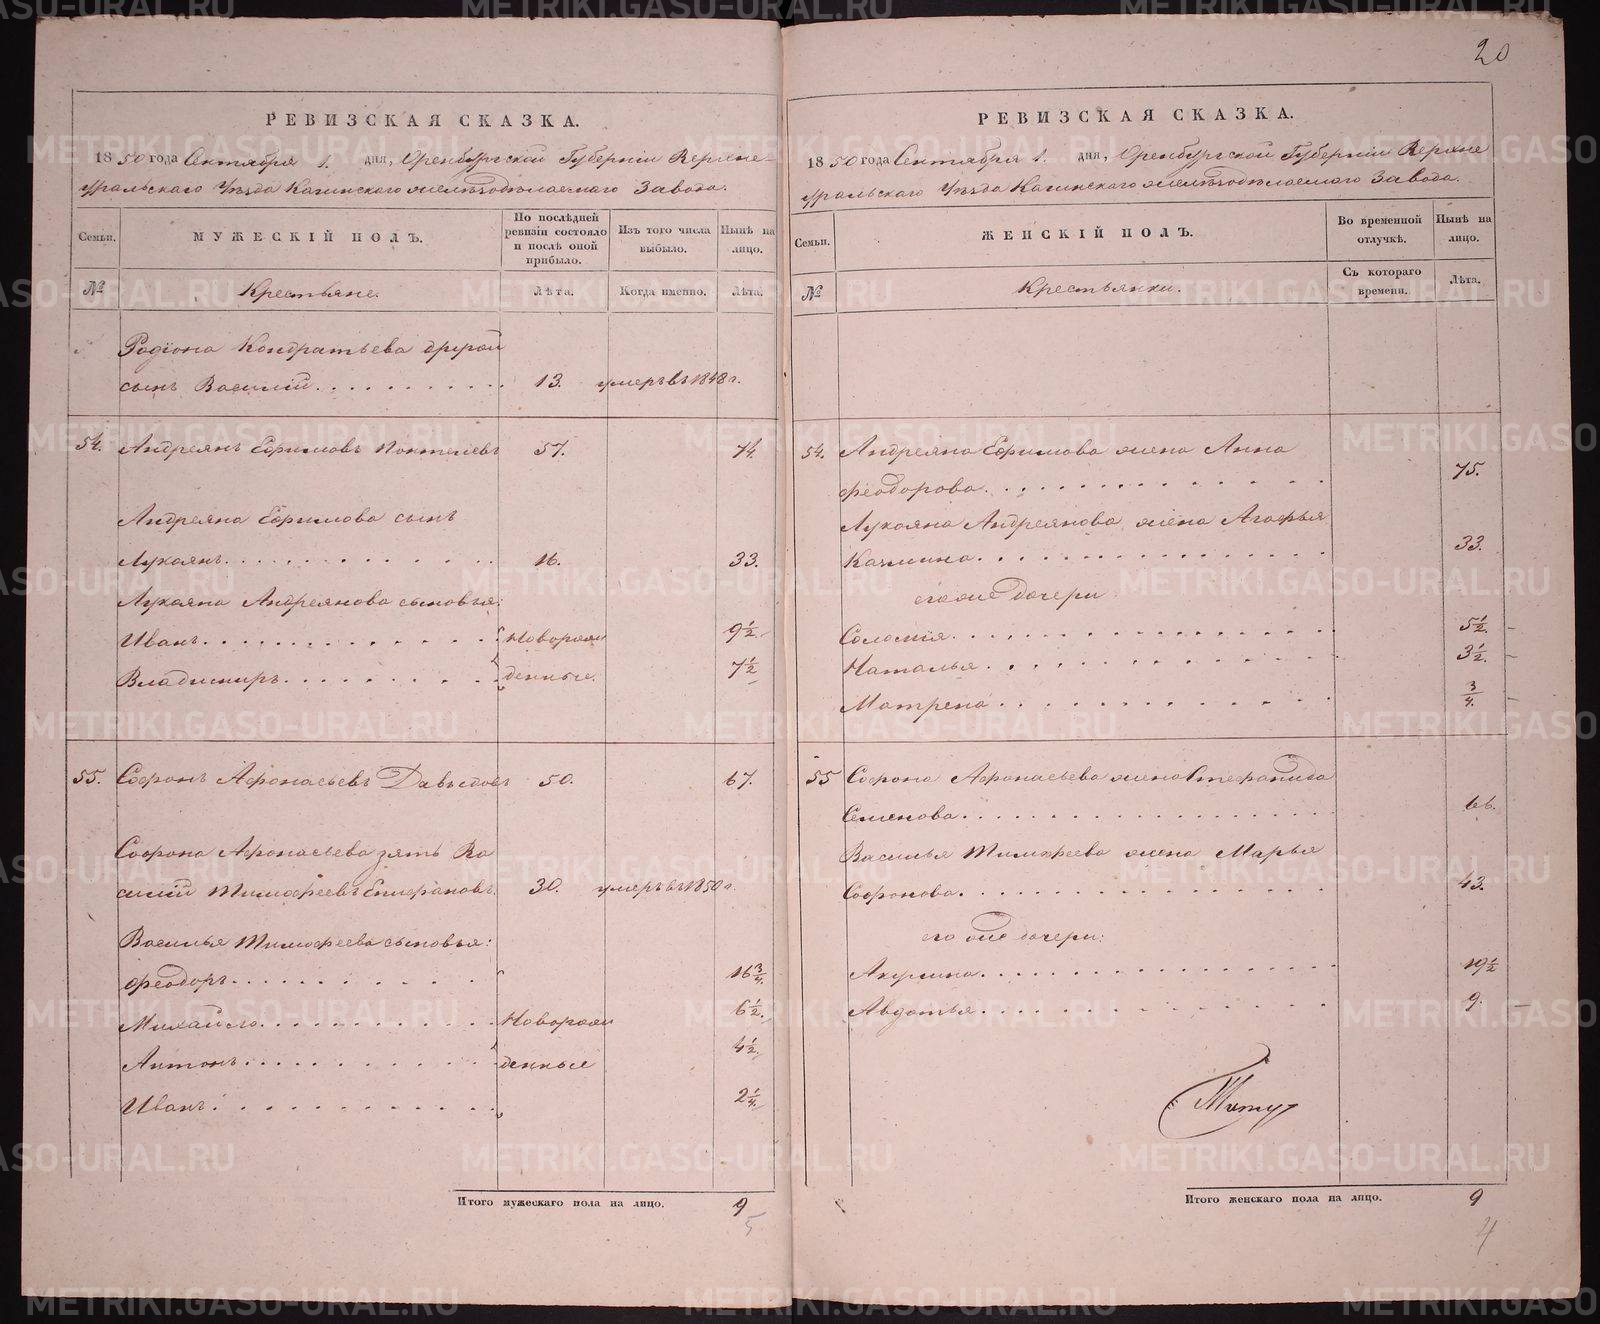 20
РЕВИЗСКАЯ СКАЗКА.
1850 года Сентября 1. дня, Оренбургской Губернiи Верхне-
уральскаго Уѣзда Кагинскаго желѣзодѣлаемаго Завода.
Семьи.
МУЖЕСКІЙ ПОЛЪ.
По послѣдней
ревизіи состояло
и послѣ оной
прибыло.
Изъ того числа
выбыло.
Нынѣ на
лицо.
№
Крестьяне.
Лѣта.
Когда именно.
Лѣта.
Родiона Кондратьева другой
сынъ Василiй. 13. умеръ въ 1848 г.
54. Андреянъ Ефимовъ 57. 74.
Андреяна Ефимова сынъ
Лукоянъ. 16. 33.
Лукояна Андреянова сыновья:
Иванъ. Ноborож 9½
Владимиръ. денные. 7½
55. Софронъ Афонасьевъ Давыдовъ 50. 67.
Софрона Афонасьева зять Ва
силiй Тимофеевъ Епифановъ. 30. умеръ въ 1850 г.
Василья Тимофеева сыновья:
Феодоръ. 16¾
Михайло. Новорож 6½
Антонъ. денные 4½
Иванъ. 2¼
Итого мужескаго пола на лицо. 9
5
РЕВИЗСКАЯ СКАЗКА.
1850 года Сентября 1. дня, Оренбургской Губернiи Верхне
уральскаго Уѣзда Кагинскаго желѣзодѣлаемаго Завода.
Семьи.
ЖЕНСКІЙ ПОЛЪ.
Во временной
отлучкѣ.
Нынѣ на
лицо.
№
Крестьянки.
Съ котораго
времени.
Лѣта.
54. Андреяна Ефимова жена Анна
Феодорова. 75.
Лукояна Андреянова жена Агафья
Калмина. 33.
его же дочери
Соломiя. 5½
Наталья. 3½
Матрена. ¾
55 Софрона Афонасьева жена Стефанида
Семенова. 66.
Василья Тимофеева жена Марья
Софронова. 43.
его же дочери:
Акулина. 19½
Авдотья. 9.
Итого женскаго пола на лицо. 9
4
METRIKI.GASO-URAL.RU